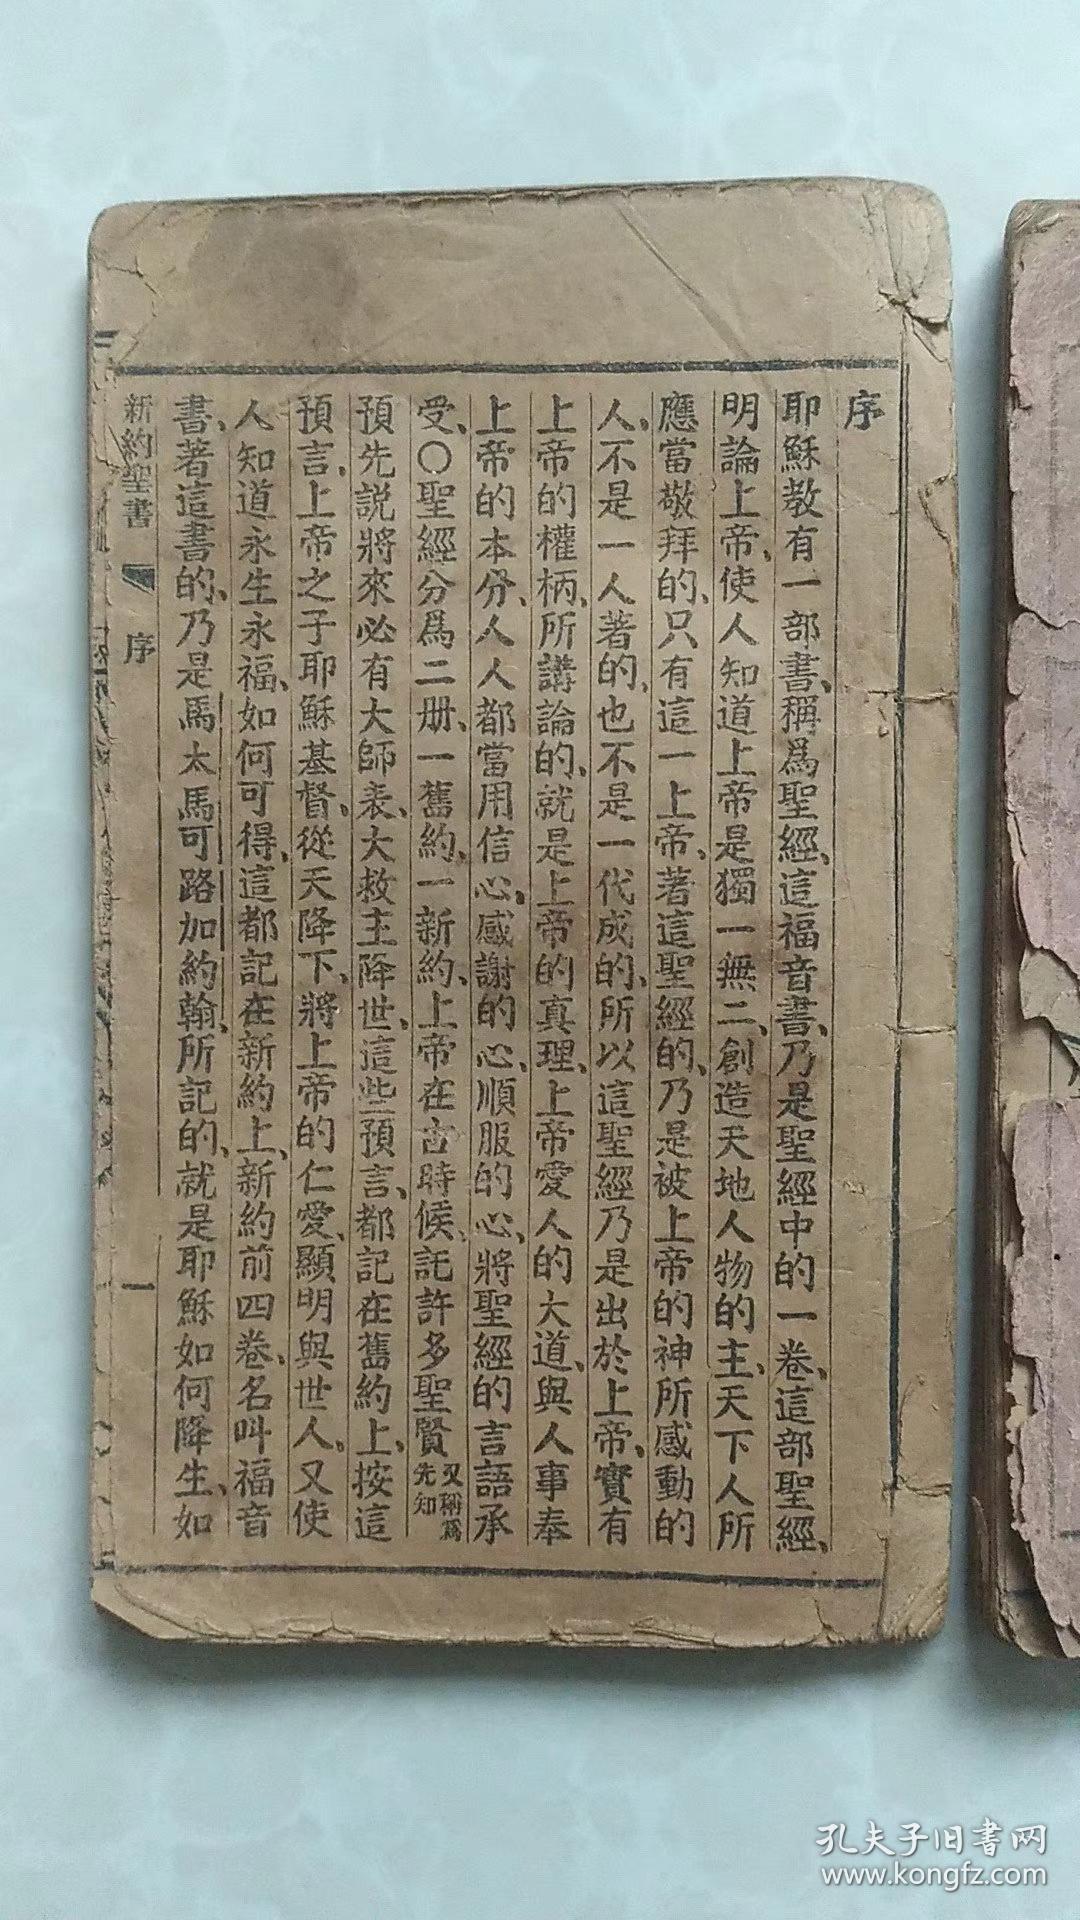 序
耶穌教有一部書、稱爲聖經、這福音書、乃是聖經中的一卷、這部聖經、
明論上帝、使人知道上帝是獨一無二、創造天地人物的主、天下人所
應當敬拜的、只有這一上帝、著這聖經的、乃是被上帝的神所感動的
人、不是一人著的、也不是一代成的、所以這聖經乃是出於上帝、實有
上帝的權柄、所講論的、就是上帝的真理、上帝愛人的大道、與人事奉
上帝的本分、人人都當用信心、感謝的心、順服的心、將聖經的言語承
受、〇聖經分爲二册、一舊約、一新約、上帝在古時候、託許多聖賢又稱爲先知
預先説將來必有大師表、大救主降世、這些預言、都記在舊約上、按這
預言、上帝之子耶穌基督、從天降下、將上帝的仁愛、顯明與世人、又使
人知道永生永福、如何可得、這都記在新約上、新約前四卷、名叫福音
書、著這書的、乃是馬太馬可路加約翰、所記的、就是耶穌如何降生、如
新約聖書 序 一
孔夫子旧書网
www.kongfz.com